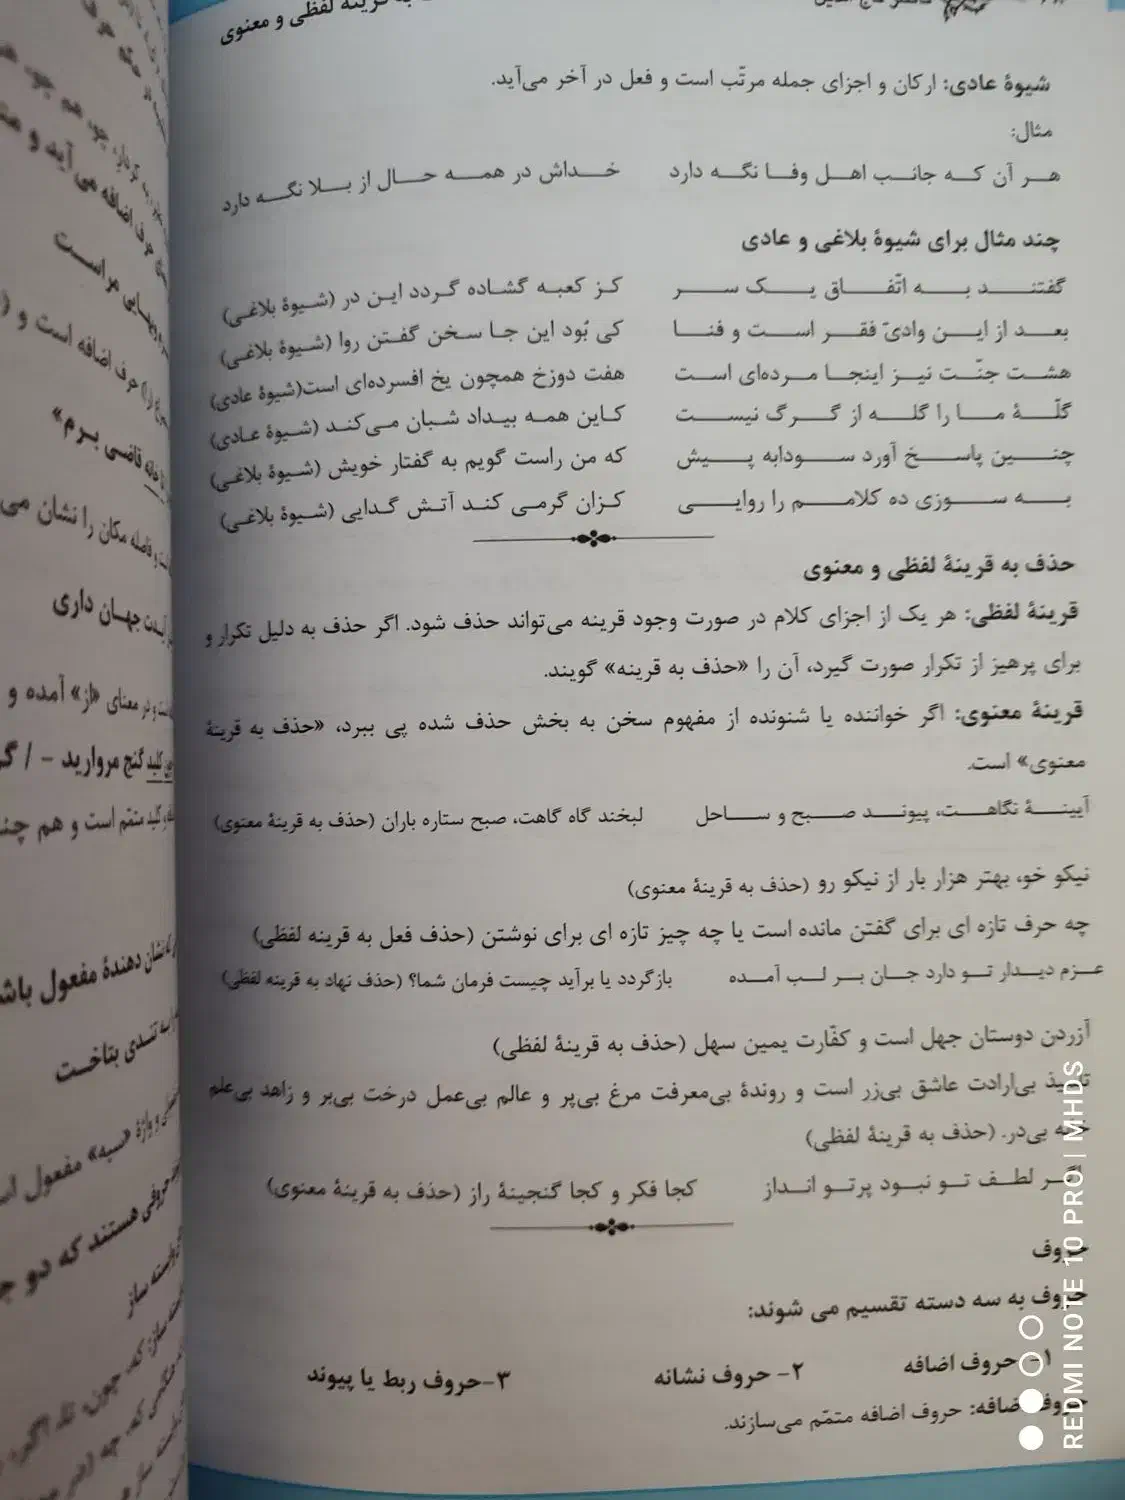 به قرینهٔ لفظی و معنوی
شیوهٔ عادی: ارکان و اجزای جمله مرتّب است و فعل در آخر می‌آید.
مثال:
هر آن که جانب اهل وفا نگه دارد خداش در همه حال از بلا نگه دارد
چند مثال برای شیوهٔ بلاغی و عادی
گفتند به اتّفاق یک سر کز کعبه گشاده گردد این در (شیوهٔ بلاغی)
بعد از این وادیّ فقر است و فنا کی بُود این جا سخن گفتن روا (شیوهٔ بلاغی)
هشت جنّت نیز اینجا مرده‌ای است هفت دوزخ همچون یخ افسرده‌ای است(شیوهٔ عادی)
گلّهٔ ما را گله از گرگ نیست کاین همه بیداد شبان می‌کند (شیوهٔ عادی)
چنین پاسخ آورد سودابه پیش که من راست گویم به گفتار خویش (شیوهٔ بلاغی)
به سوزی ده کلامم را روایی کزان گرمی کند آتش گدایی (شیوهٔ بلاغی)
حذف به قرینهٔ لفظی و معنوی
قرینهٔ لفظی: هر یک از اجزای کلام در صورت وجود قرینه می‌تواند حذف شود. اگر حذف به دلیل تکرار و
برای پرهیز از تکرار صورت گیرد، آن را «حذف به قرینه» گویند.
قرینهٔ معنوی: اگر خواننده یا شنونده از مفهوم سخن به بخش حذف شده پی ببرد، «حذف به قرینهٔ
معنوی» است.
آیینهٔ نگاهت، پیوند صبح و ساحل لبخند گاه گاهت، صبح ستاره باران (حذف به قرینهٔ معنوی)
نیکو خو، بهتر هزار بار از نیکو رو (حذف به قرینهٔ معنوی)
چه حرف تازه ای برای گفتن مانده است یا چه چیز تازه ای برای نوشتن (حذف فعل به قرینه لفظی)
عزم دیدار تو دارد جان بر لب آمده بازگردد یا برآید چیست فرمان شما؟ (حذف نهاد به قرینه لفظی)
آزردن دوستان جهل است و کفّارت یمین سهل (حذف به قرینهٔ لفظی)
تلمیذ بی‌ارادت عاشق بی‌زر است و روندهٔ بی‌معرفت مرغ بی‌پر و عالم بی‌عمل درخت بی‌بر و زاهد بی‌علم
خانه بی‌در. (حذف به قرینهٔ لفظی)
گر لطف تو نبود پرتو انداز کجا فکر و کجا گنجینهٔ راز (حذف به قرینهٔ معنوی)
حروف
حروف به سه دسته تقسیم می شوند:
۱- حروف اضافه ۲- حروف نشانه ۳-حروف ربط یا پیوند
حروف اضافه: حروف اضافه متمّم می‌سازند.
حرف اضافه می آید و
مراست
حرف اضافه است و
خانه قاضی برم»
و فاصله مکان را نشان می
جهان داری
و در معنای «از» آمده و
کلید گنج مروارید - / گ
کلید متمّم است و هم چن
نشان دهندهٔ مفعول باش
به تندی بتاخت
و واژهٔ «سبه» مفعول
حروفی هستند که دو
وابسته ساز
REDMI NOTE 10 PRO | MHDS